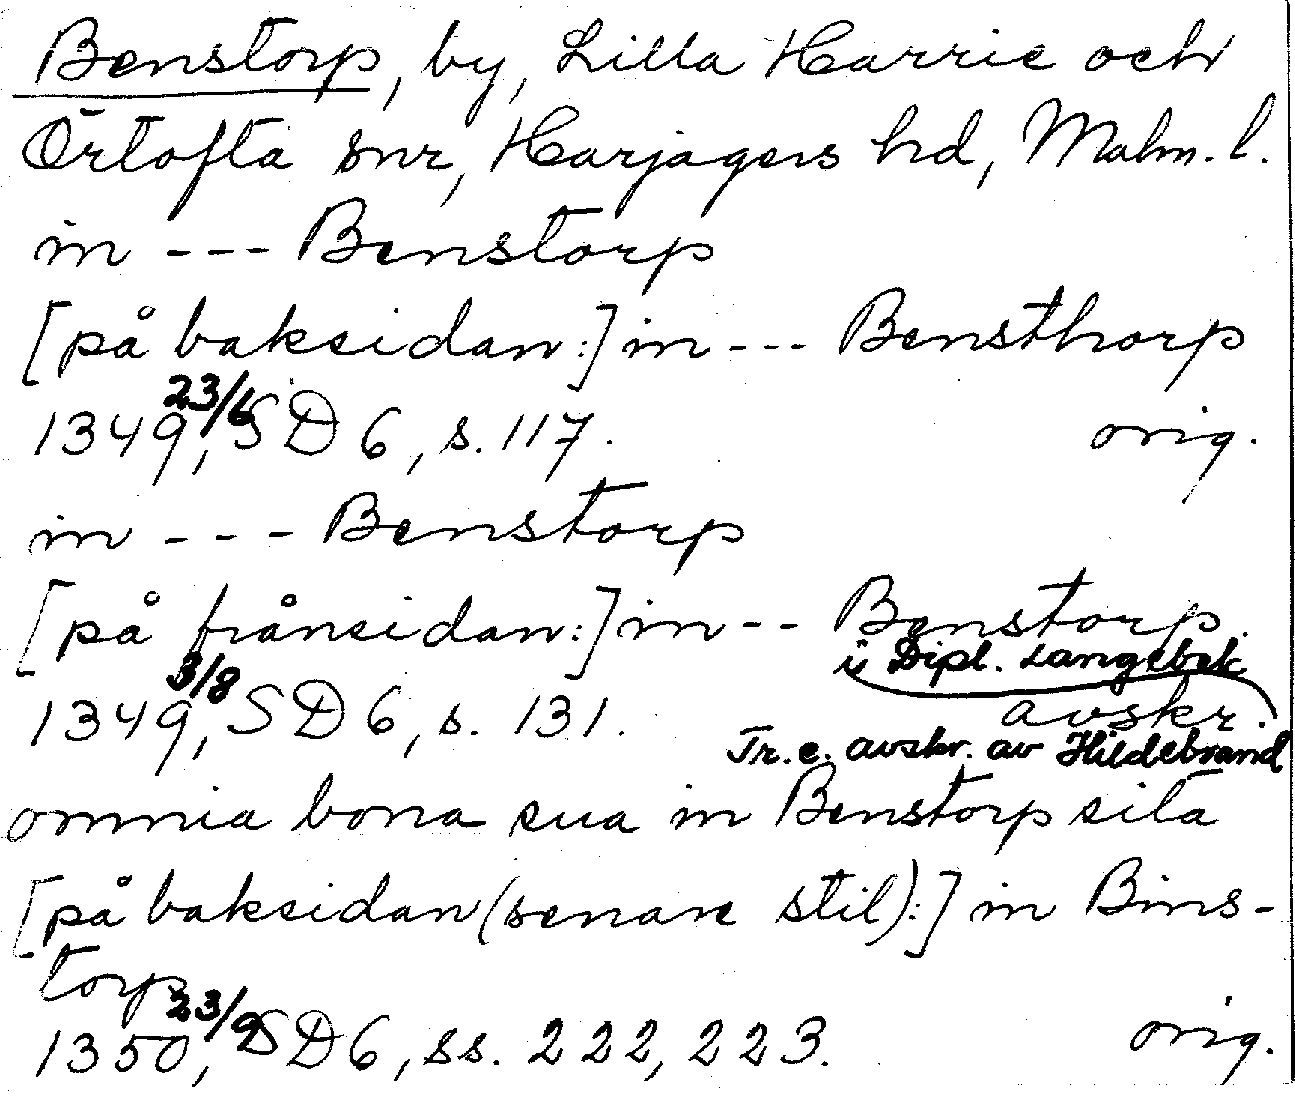 Benstorp, by, Lilla Harrie och
Örtofta snr, Harjagers hd, Malm. l.
in --- Benstorp
[på baksidan:] in --- Bensthorp
1349 23/6, SD 6, s. 117. orig.
in --- Benstorp
[på frånsidan:] in -- Benstorp.
i Dipl. Langebek
1349 3/8, SD 6, s. 131. avskr.
Tr. e. avskr. av Hildebrand
omnia bona sua in Benstorp sita
[på baksidan (senare stil):] in Bins-
torp
1350 23/9, SD 6, ss. 222, 223. orig.